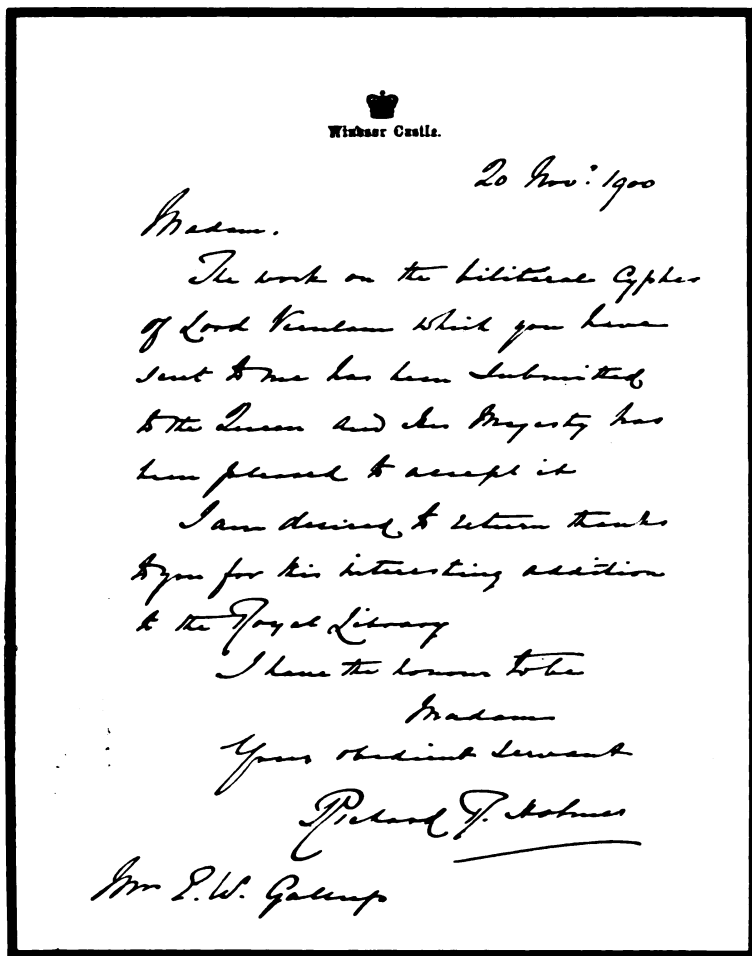 Windsor Castle.
20 Nov: 1900
Madam.
The work on the biliteral Cypher
of Lord Verulam which you have
sent to me has been submitted
to the Queen and Her Majesty has
been pleased to accept it
I am desired to return thanks
to you for this interesting addition
to the Royal Library
I have the honour to be
Madam
Your obedient servant
Richard R. Holmes
Mrs E. W. Gallup